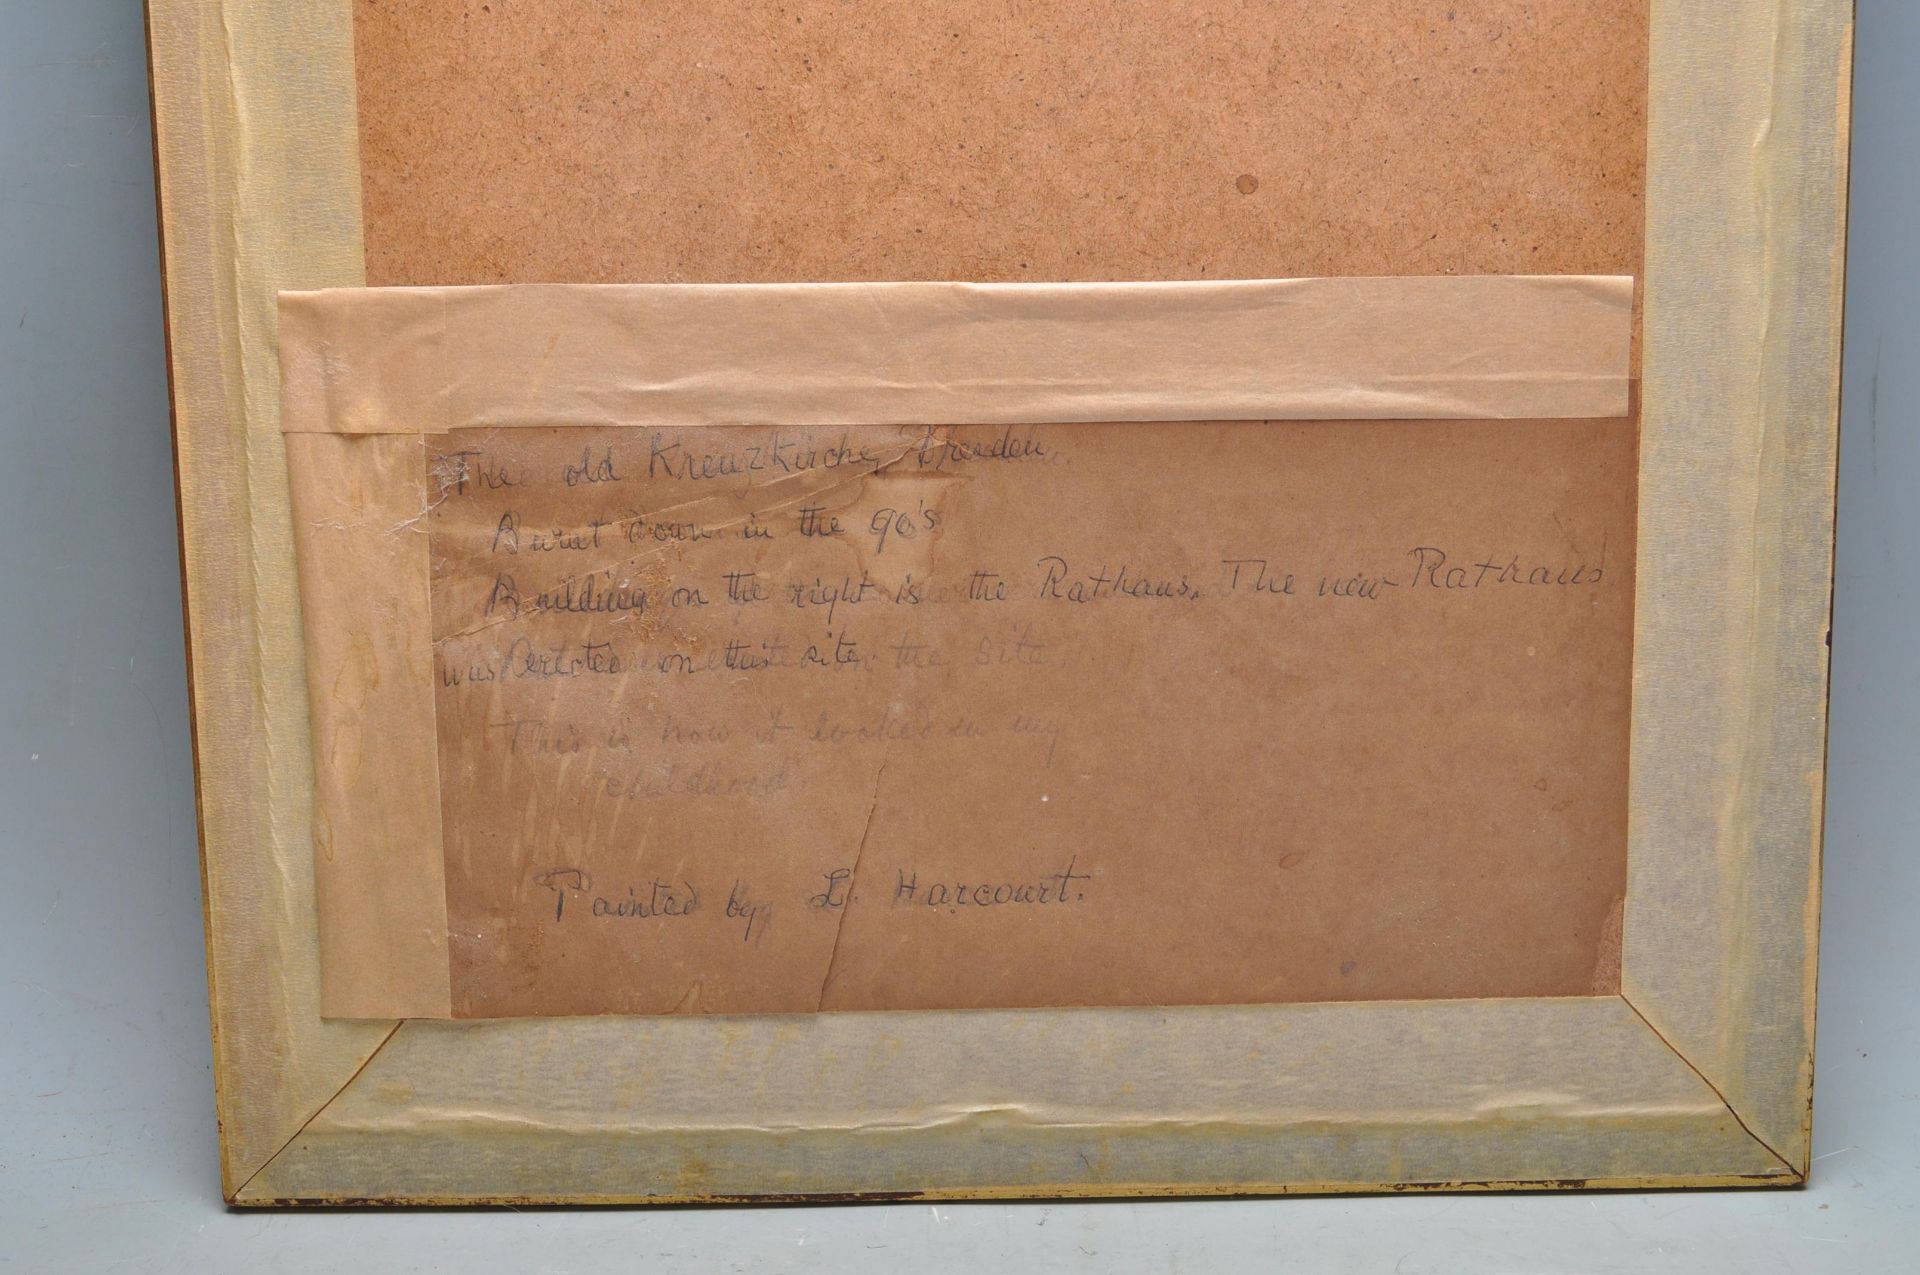 The old Kreuzkirche, Dresden.
Burnt down in the 90's
Building on the right is the Rathaus. The new Rathaus
was erected on this site. the site.
This is how it looked in my
childhood.
Painted by L. Harcourt.